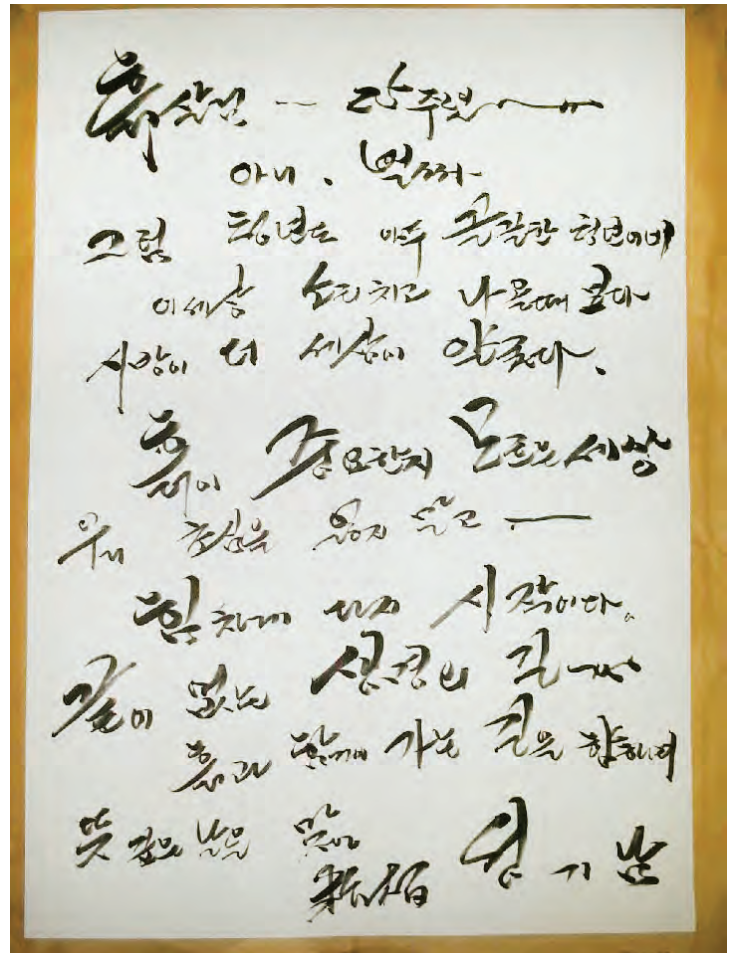 흙사랑 ~ 20주년 ~
아니, 벌써
그럼 청년도 아주 꼴깔한 청년이네
이세상 소리치고 나올때 보다
시상이 더 세상이 안좋다.
흙이 중요한지 모르는 세상
우리 초심을 잃지 말고 ~
힘차게 다시 시작이다.
끝이 없는 생명의 길~
흙과 함께 가는 길을 향하여
뜻 깊은 날을 맞아
기남